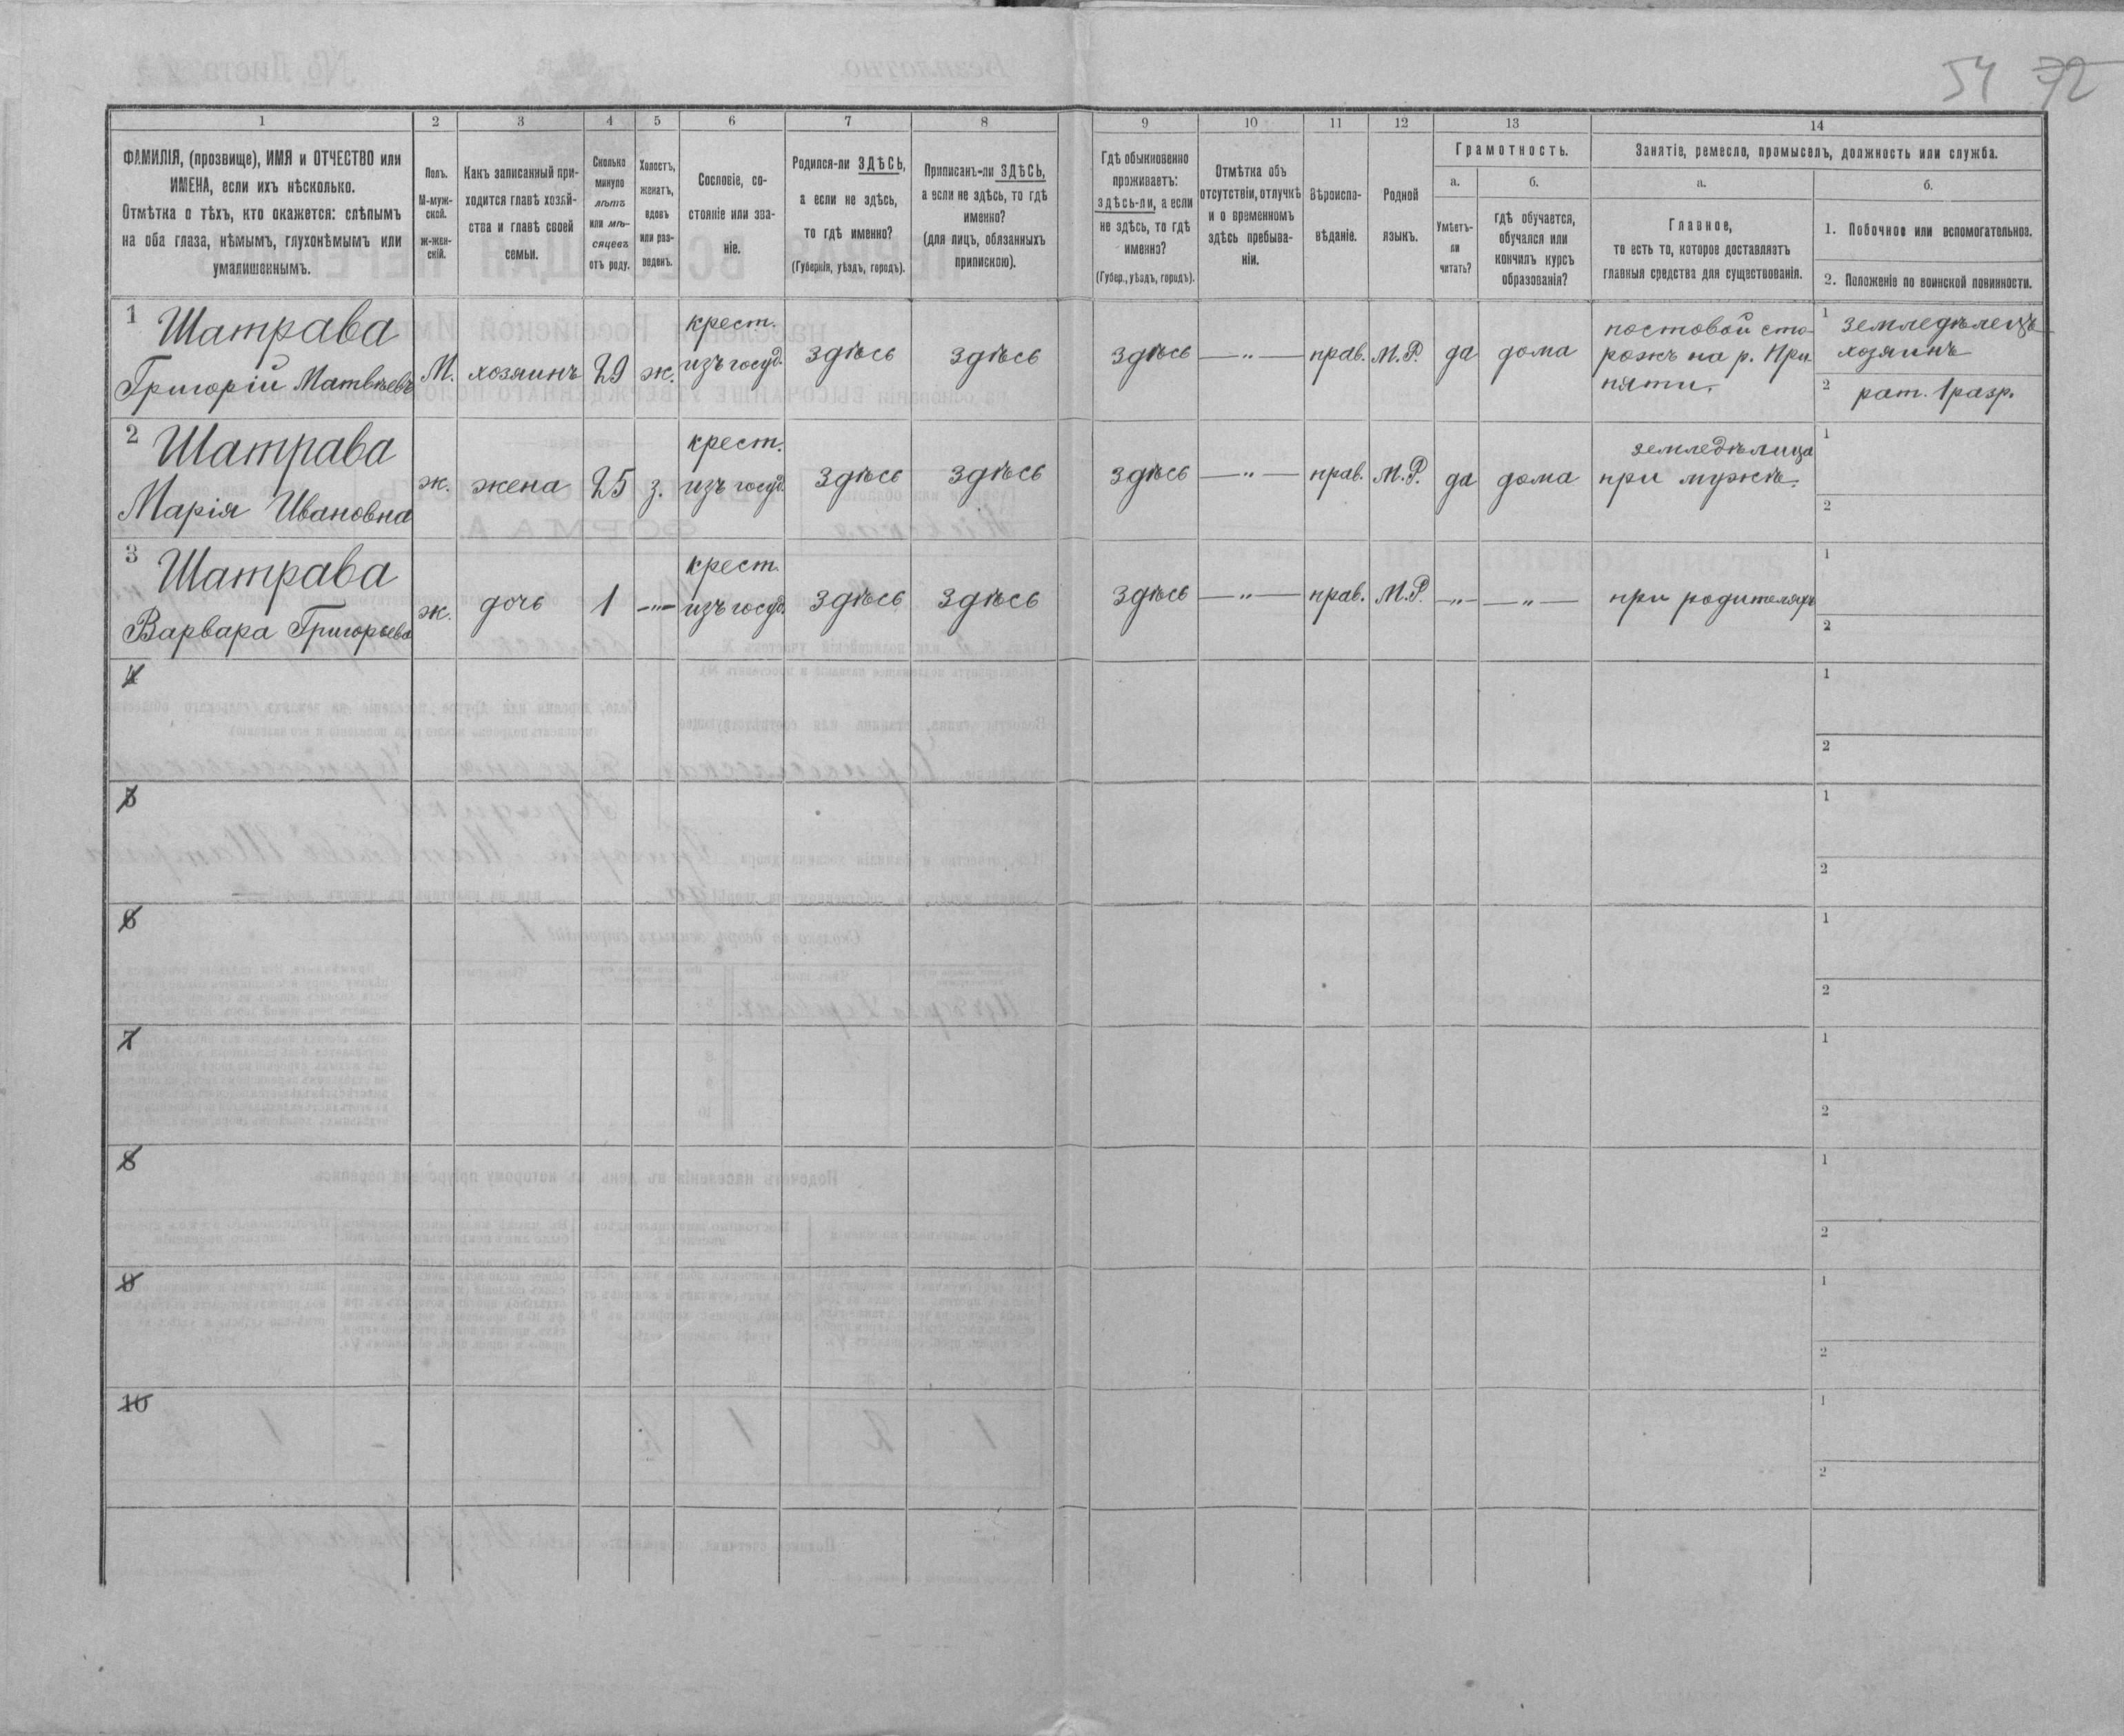 54 72
1 2 3 4 5 6 7 8 9 10 11 12 13 14
ФАМИЛІЯ, (прозвище), ИМЯ и ОТЧЕСТВО или
ИМЕНА, если ихъ нѣсколько.
Отмѣтка о тѣхъ, кто окажется: слѣпымъ
на оба глаза, нѣмымъ, глухонѣмымъ или
умалишеннымъ.
Полъ.
М-муж-
ской.
ж-жен-
скій.
Какъ записанный при-
ходится главѣ хозяй-
ства и главѣ своей
семьи.
Сколько
минуло
лѣтъ
или мѣ-
сяцевъ
отъ роду.
Холостъ,
женатъ,
вдовъ
или раз-
веденъ.
Сословіе, со-
стояніе или зва-
ніе.
Родился-ли ЗДѢСЬ,
а если не здѣсь,
то гдѣ именно?
(Губернія, уѣздъ, городъ).
Приписанъ-ли ЗДѢСЬ,
а если не здѣсь, то гдѣ
именно?
(для лицъ, обязанныхъ
припискою).
Гдѣ обыкновенно
проживаетъ:
здѣсь-ли, а если
не здѣсь, то гдѣ
именно?
(Губер., уѣздъ, городъ).
Отмѣтка объ
отсутствіи, отлучкѣ
и о временномъ
здѣсь пребыва-
ніи.
Вѣроиспо-
вѣданіе.
Родной
языкъ.
Грамотность.
а.
Умѣетъ-
ли
читать?
б.
гдѣ обучается,
обучался или
кончилъ курсъ
образованія?
Занятіе, ремесло, промыселъ, должность или служба.
а.
Главное,
то есть то, которое доставляетъ
главныя средства для существованія.
б.
1. Побочное или вспомогательное.
2. Положеніе по воинской повинности.
1 Шатрава
Григорій Матвѣевъ
М.
хозяинъ
29
ж.
крест.
изъ госуд.
здѣсь
здѣсь
здѣсь
— „ —
прав.
М.Р.
да
дома
постовой сто-
рожъ на р. При
пяти.
1 земледѣлецъ
хозяинъ
2 рат. 1 разр.
2 Шатрава
Марія Ивановна
ж.
жена
25
з.
крест.
изъ госуд.
здѣсь
здѣсь
здѣсь
— „ —
прав.
М.Р.
да
дома
земледѣлица
при мужѣ.
1
2
3 Шатрава
Варвара Григорьева
ж.
дочь
1
— „ —
крест.
изъ госуд.
здѣсь
здѣсь
здѣсь
— „ —
прав.
М.Р.
— „ —
— „ —
при родителяхъ
1
2
4
1
2
5
1
2
6
1
2
7
1
2
8
1
2
9
1
2
10
1
2